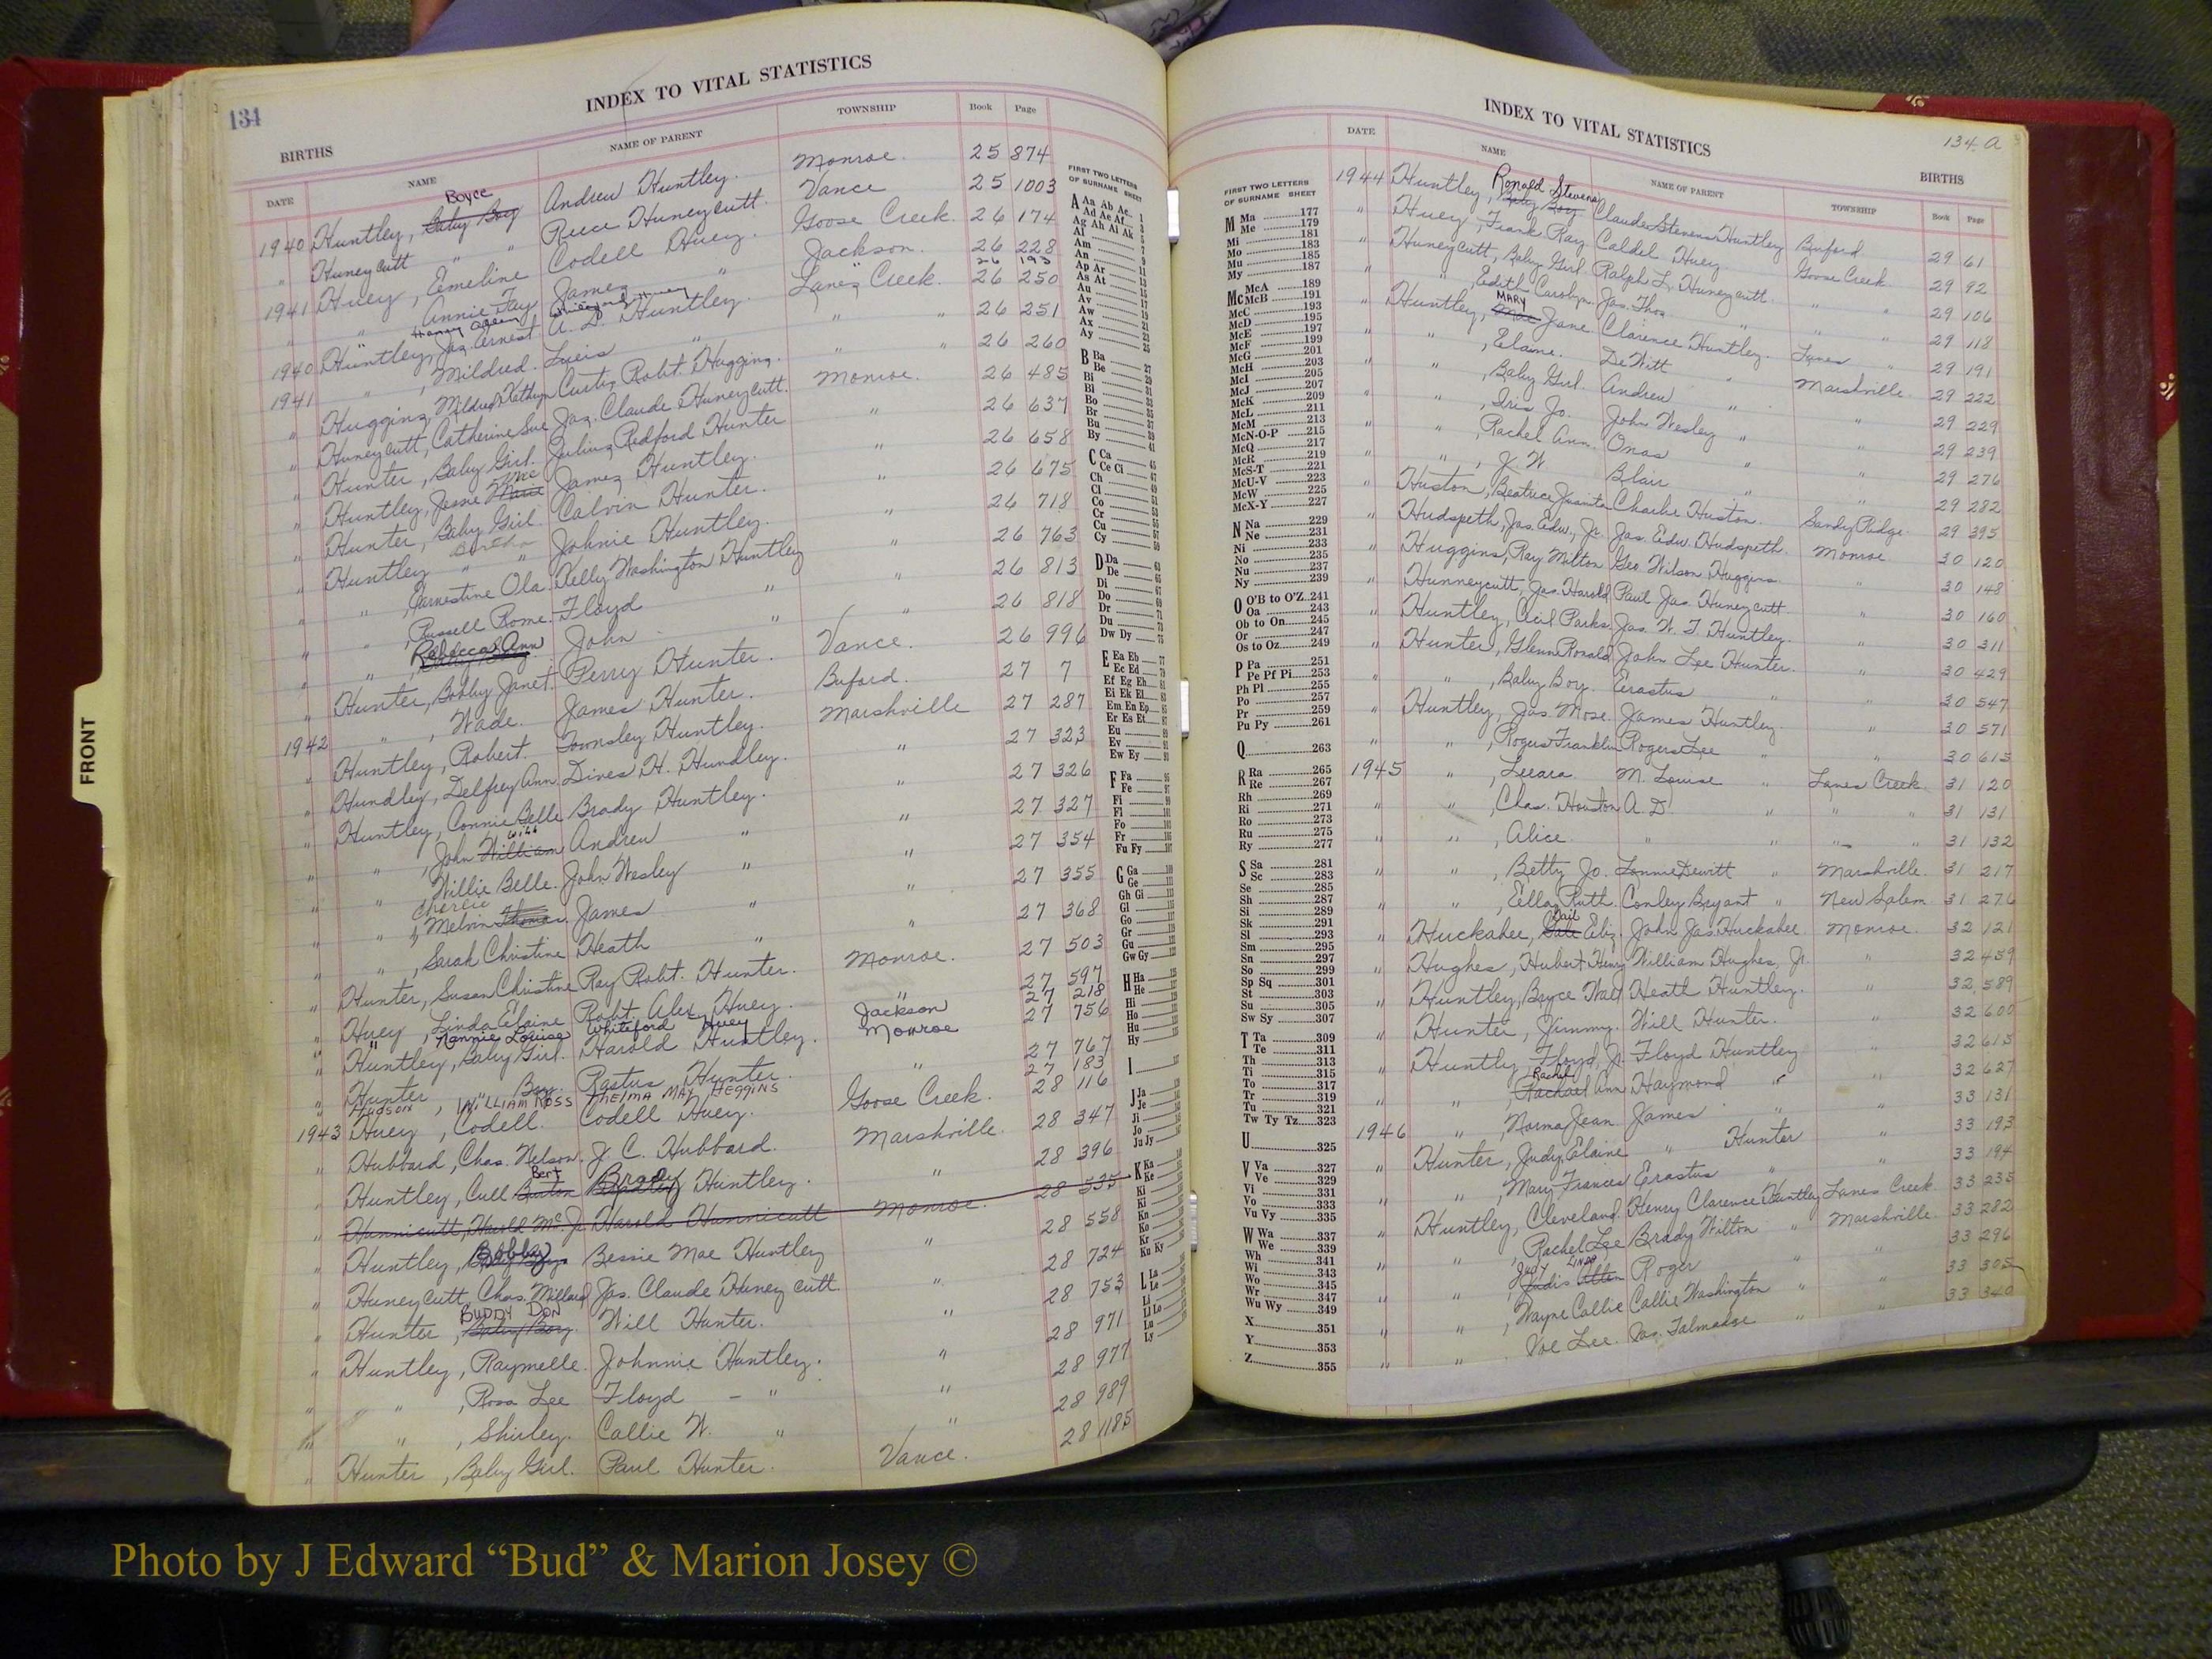 134
INDEX TO VITAL STATISTICS
BIRTHS
DATE NAME NAME OF PARENT TOWNSHIP Book Page
1940 Huntley, Baby Boy Boyce Andrew Huntley. Monroe. 25 874
" Huneycutt " " Reece Huneycutt. Vance 25 1003
1941 Huey, Emeline Codell Huey. Goose Creek. 26 174
" " Annie Fay James " Jackson. 26 228
26 193
1940 Huntley, Jas. Ernest A. D. Huntley. Lanes Creek. 26 250
1941 " , Mildred. Luis " " " 26 251
" Huggins, Mildred Kathryn Curtis Robt. Huggins. " " 26 260
" Huneycutt, Catherine Sue Jas. Claude Huneycutt. Monroe. 26 485
" Hunter, Baby Girl. Julius Redford Hunter " 26 637
" Huntley, Jessie Marie Mae James Huntley. " 26 658
" Hunter, Baby Girl. Calvin Hunter. " 26 675
" Huntley " " Johnie Huntley. " 26 718
" " , Earnestine Ola. Kelly Washington Huntley " 26 763
" " , Russell Rome. Floyd " " 26 813
" " , Rebecca Ann John " " 26 818
" Hunter, Bobby Janet. Perry Hunter. Vance. 26 996
1942 " , Wade. James Hunter. Buford. 27 7
" Huntley, Robert. Townsley Huntley. Marshville 27 287
" Hundley, Delfrey Ann. Dives H. Hundley. " 27 323
" Huntley, Connie Belle Brady Huntley. " 27 326
" " , John William Andrew " " 27 327
" " Willie Belle. John Wesley " " 27 354
" " , Melvin Thomas. Charlie James " " 27 355
" " , Sarah Christine Heath " " 27 368
" Hunter, Susan Christine Ray Robt. Hunter. Monroe. 27 503
" Huey, Linda Elaine Robt. Alex Huey. " 27 597
" " Nannie Louise Whiteford Huey Jackson 27 218
" Huntley, Baby Girl. Harold Huntley. Monroe 27 756
" Hunter " Boy. Rastus Hunter. " 27 767
HUDSON, WILLIAM ROSS THELMA MAY HEGGINS 27 183
1943 Huey, Codell. Codell Huey. Goose Creek. 28 116
" Hubbard, Chas. Nelson. J. C. Hubbard. Marshville. 28 347
" Huntley, Cull Burton Bert Bradley Brady Huntley. " 28 396
" Hunnicutt, Harold Mc Jr. Harold Hunnicutt Monroe. 28 535
" Huntley, Baby Boy Bobby Bessie Mae Huntley " 28 558
" Huneycutt, Chas. Millard Jas. Claude Huneycutt. " 28 724
" Hunter, Baby Boy. BUDDY DON Will Hunter. " 28 753
" Huntley, Raymelle. Johnnie Huntley. " 28 971
" " , Rosa Lee Floyd - " " 28 977
" " , Shirley. Callie W. " " 28 989
" Hunter, Baby Girl. Paul Hunter. Vance. 28 1185
FIRST TWO LETTERS
OF SURNAME SHEET
A Aa Ab Ac 1
Ad Ae Af 3
Ag Ah Ai Ak 5
Al 7
Am 9
An
Ap Ar
As At
Au
Av
Aw
Ax
Ay
B Ba 27
Be 29
Bi
Bl
Bo
Br
Bu
By 41
C Ca
Ce Ci
Ch
Cl
Co
Cr
Cu
Cy
D Da
De
Di
Do
Dr
Du
Dw Dy
E Ea Eb
Ec Ed
Ef Eg Eh
Ei Ek El
Em En Ep
Er Es Et
Eu
Ev
Ew Ey
F Fa
Fe
Fi
Fl
Fo
Fr
Fu Fy
G Ga
Ge
Gh Gi
Gl
Go
Gr
Gu
Gw Gy
H Ha
He
Hi
Ho
Hu
Hy
I
J Ja
Je
Ji
Jo
Ju Jy
K Ka
Ke
Ki
Kl
Kn
Ko
Kr
Ku Ky
L La
Le
Li
Ll Lo
Lu
Ly
FRONT
134 A
INDEX TO VITAL STATISTICS
BIRTHS
DATE NAME NAME OF PARENT TOWNSHIP Book Page
FIRST TWO LETTERS
OF SURNAME SHEET
M Ma 177
Me 179
Mi 181
Mo 183
Mu 185
My 187
Mc McA 189
McB 191
McC 193
McD 195
McE 197
McF 199
McG 201
McH 203
McI 205
McJ 207
McK 209
McL 211
McM 213
McN-O-P 215
McQ 217
McR 219
McS-T 221
McU-V 223
McW 225
McX-Y 227
N Na 229
Ne 231
Ni 233
No 235
Nu 237
Ny 239
O O'B to O'Z 241
Oa 243
Ob to On 245
Or 247
Os to Oz 249
P Pa 251
Pe Pf Pi 253
Ph Pl 255
Po 257
Pr 259
Pu Py 261
Q 263
R Ra 265
Re 267
Rh 269
Ri 271
Ro 273
Ru 275
Ry 277
S Sa 281
Sc 283
Se 285
Sh 287
Si 289
Sk 291
Sl 293
Sm 295
Sn 297
So 299
Sp Sq 301
St 303
Su 305
Sw Sy 307
T Ta 309
Te 311
Th 313
Ti 315
To 317
Tr 319
Tu 321
Tw Ty Tz 323
U 325
V Va 327
Ve 329
Vi 331
Vo 333
Vu Vy 335
W Wa 337
We 339
Wh 341
Wi 343
Wo 345
Wr 347
Wu Wy 349
X 351
Y 353
Z 355
1944 Huntley, Baby Boy Ronald Stevens Claude Stevens Huntley Buford. 29 61
" Huey, Franks Ray Caldel Huey Goose Creek. 29 92
" Huneycutt, Baby Girl. Ralph L. Huneycutt. " " 29 106
" " , Edith Carolyn. Jas. Thos. " " " 29 118
" Huntley, Mae MARY Jane Clarence Huntley. Lanes " 29 191
" " , Elaine. DeWitt " Marshville. 29 222
" " , Baby Girl. Andrew " " 29 229
" " , Iris Jo. John Wesley " " 29 239
" " , Rachel Ann. Onas " " 29 276
" " , J. W. Blair " " 29 282
" Huston, Beatrice Juanita Charlie Huston. Sandy Ridge. 29 395
" Hudspeth, Jas. Edw., Jr. Jas. Edw. Hudspeth. Monroe 30 120
" Huggins, Ray Milton Geo. Wilson Huggins. " 30 148
" Hunneycutt, Jas. Harold Paul Jas. Huneycutt. " 30 160
" Huntley, Cecil Parks. Jas. W. T. Huntley. " 30 311
" Hunter, Glenn Ronald John Lee Hunter. " 30 429
" " , Baby Boy. Erastus " " 30 547
" Huntley, Jas. Mose. James Huntley. " 30 571
" " , Rogers Franklin Rogers Lee " " 30 613
1945 " , Leeara M. Louise " Lanes Creek. 31 120
" " , Chas. Houston A. D. " " " 31 131
" " , Alice. " " " " 31 132
" " , Betty Jo. Lonnie Dewitt " Marshville. 31 217
" " , Ella Ruth. Conley Bryant " New Salem. 31 276
" Huckabee, Gale Gail Eliz. John Jas. Huckabee. Monroe. 32 121
" Hughes, Hubert Henry William Hughes, Jr. " 32 459
" Huntley, Boyce Walt Heath Huntley. " 32 589
" Hunter, Jimmy. Will Hunter. " 32 600
" Huntly, Floyd, Jr. Floyd Huntley " 32 615
" " , Rachael Rachel Ann Haymond " " 32 627
1946 " , Norma Jean James " " 33 131
" Hunter, Judy Elaine " Hunter " 33 193
" " , Mary Frances Erastus " " 33 194
" Huntley, Cleveland. Henry Clarence Huntley Lanes Creek. 33 235
" " , Rachel Lee Brady Wilton " Marshville. 33 282
" " , Judis Allen Judy LINDA Roger " " 33 296
" " , Wayne Callie Callie Washington " " 33 305
" " Voe Lee. Jas. Talmadge " " 33 340
Photo by J Edward “Bud” & Marion Josey ©